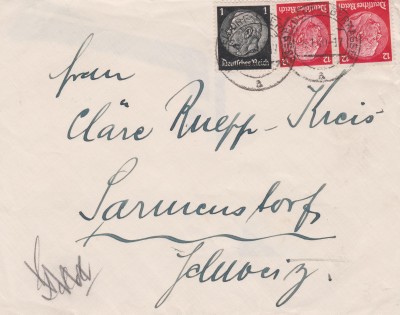 1
12
Deutsches Reich
12
Deutsches Reich
12
a
a
Frau
Cläre Ruepp-Kreis
Sarmenstorf
Schweiz.